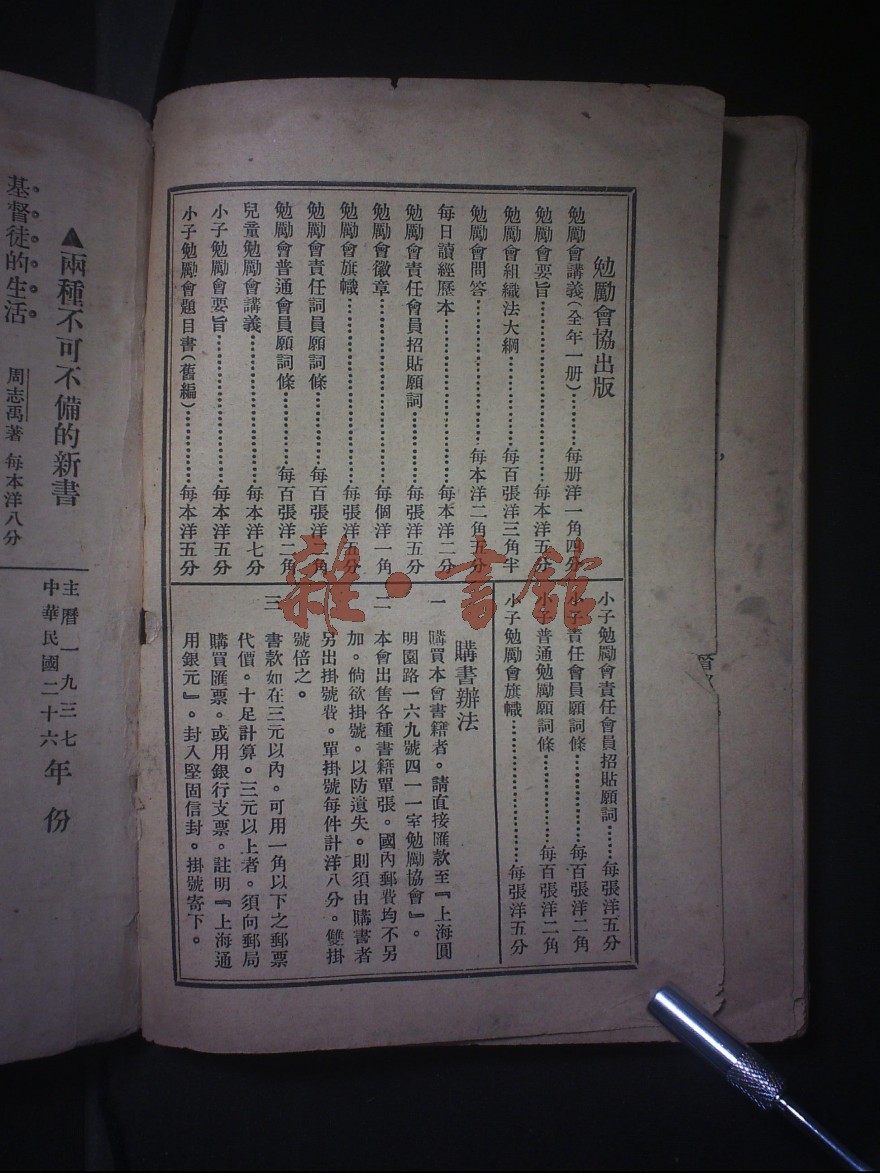 勉勵會協出版
勉勵會講義(全年一册)………每册洋一角四分
勉勵會要旨………每本洋五分
勉勵會組織法大綱………每百張洋三角半
勉勵會問答………每本洋二角五分
每日讀經歷本………每本洋二分
勉勵會責任會員招貼願詞………每張洋五分
勉勵會徽章………每個洋一角
勉勵會旗幟………每張洋五分
勉勵會責任詞員願詞條………每百張洋二角
勉勵會普通會員願詞條………每百張洋二角
兒童勉勵會講義………每本洋七分
小子勉勵會要旨………每本洋五分
小子勉勵會題目書(舊編)………每本洋五分
小子勉勵會責任會員招貼願詞………每張洋五分
小子責任會員願詞條………每百張洋二角
小子普通勉勵願詞條………每百張洋二角
小子勉勵會旗幟………每張洋五分
購書辦法
一 購買本會書籍者。請直接匯款至『上海圓
明園路一六九號四一一室勉勵協會』。
二 本會出售各種書籍單張。國內郵費均不另
加。倘欲掛號。以防遺失。則須由購書者
另出掛號費。單掛號每件計洋八分。雙掛
號倍之。
三 書款如在三元以內。可用一角以下之郵票
代價。十足計算。三元以上者。須向郵局
購買匯票。或用銀行支票。註明『上海通
用銀元』。封入堅固信封。掛號寄下。
▲兩種不可不備的新書
基督徒的生活 周志禹著 每本洋八分
主曆一九三七
中華民國二十六
年份
雜·書館